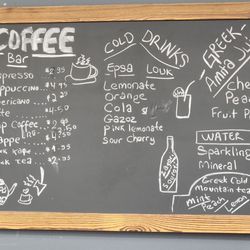 COFFEE
Bar
spresso $2.95
appuccino $4.75
ericano
tte 4.50
p Coffee
appe
k kape
k tea
COLD DRINKS
Epsa Louk
Lemonate
Orange
Cola
Gazoz
Pink lemonate
Sour cherry
GREEK
Amita
Che
Pea
Fruit P
WATER
Sparkling
Mineral
Greek Cold
mountain tea
Mint Lemon
Peach